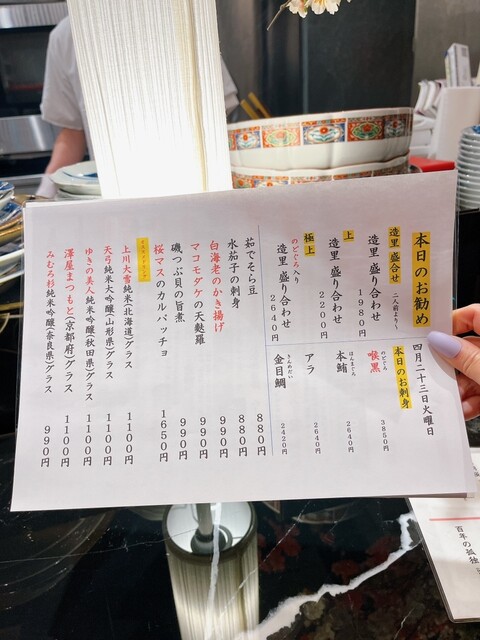 本日のお勧め
四月二十三日火曜日
造里 盛合せ 二人前より
造里 盛り合わせ 1980円
上
造里 盛り合わせ 2200円
極上
のどぐろ入り
造里 盛り合わせ 2640円
本日のお刺身
のどぐろ
喉黒 3850円
ほんまぐろ
本鮪 2640円
アラ 2640円
きんめだい
金目鯛 2420円
茹でそら豆 880円
水茄子の刺身 880円
白海老のかき揚げ 990円
マコモダケの天麩羅 990円
磯つぶ貝の旨煮 990円
桜マスのカルパッチョ 1650円
上川大雪純米(北海道)グラス 1100円
天弓純米大吟醸(山形県)グラス 1100円
ゆきの美人純米吟醸(秋田県)グラス 1100円
澤屋まつもと(京都府)グラス 1100円
みむろ杉純米吟醸(奈良県)グラス 990円
百年の孤独